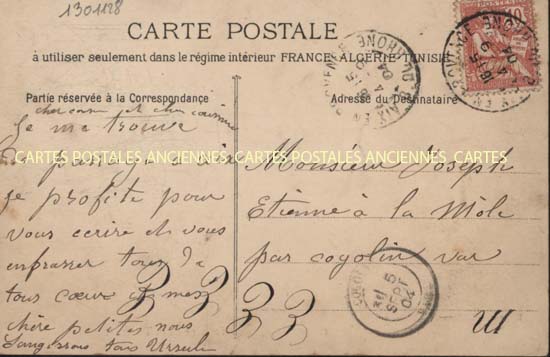 1301128
CARTE POSTALE
à utiliser seulement dans le régime intérieur FRANCE-ALGÉRIE-TUNISIE
Partie réservée à la Correspondance
Adresse du Destinataire
cher cousin et chère cousine
Je me trouve
de passage à Aix
je profite pour
vous écrire et vous
embrasser tous de
tous cœur et mes
chère petites nous
Monsieur Joseph
Etienne à la Mole
par cogolin var
CARTES POSTALES ANCIENNES CARTES POSTALES ANCIENNES CARTES
10
5
SEPT